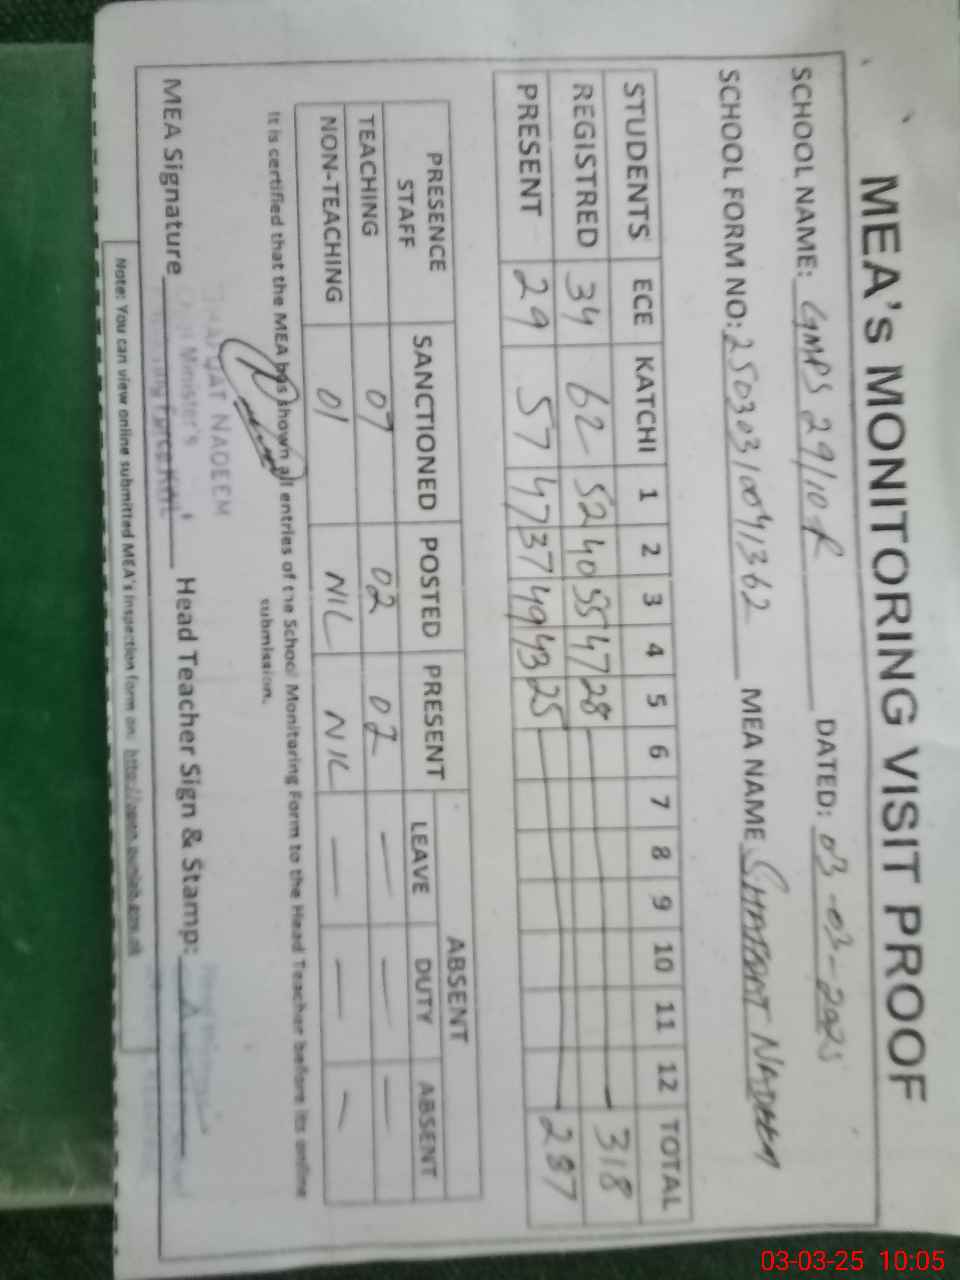 MEA's MONITORING VISIT PROOF
SCHOOL NAME: GMPS 29/10R DATED: 03-03-2025
SCHOOL FORM NO: 25030310041362 MEA NAME SHAFQAT NADEEM
STUDENTS ECE KATCHI 1 2 3 4 5 6 7 8 9 10 11 12 TOTAL
REGISTRED 34 62 52 40 55 47 28 318
PRESENT 29 57 47 37 49 43 25 287
PRESENCE STAFF SANCTIONED POSTED PRESENT ABSENT
LEAVE DUTY ABSENT
TEACHING 07 02 02 — — —
NON-TEACHING 01 NIL NIL — — —
It is certified that the MEA has shown all entries of the School Monitoring Form to the Head Teacher before its online
submission.
SHAFQAT NADEEM
Chief Minister's
Monitoring Force KWL
MEA Signature Head Teacher Sign & Stamp:
Note: You can view online submitted MEA's inspection form on: http://open.punjab.gov.pk
03-03-25 10:05